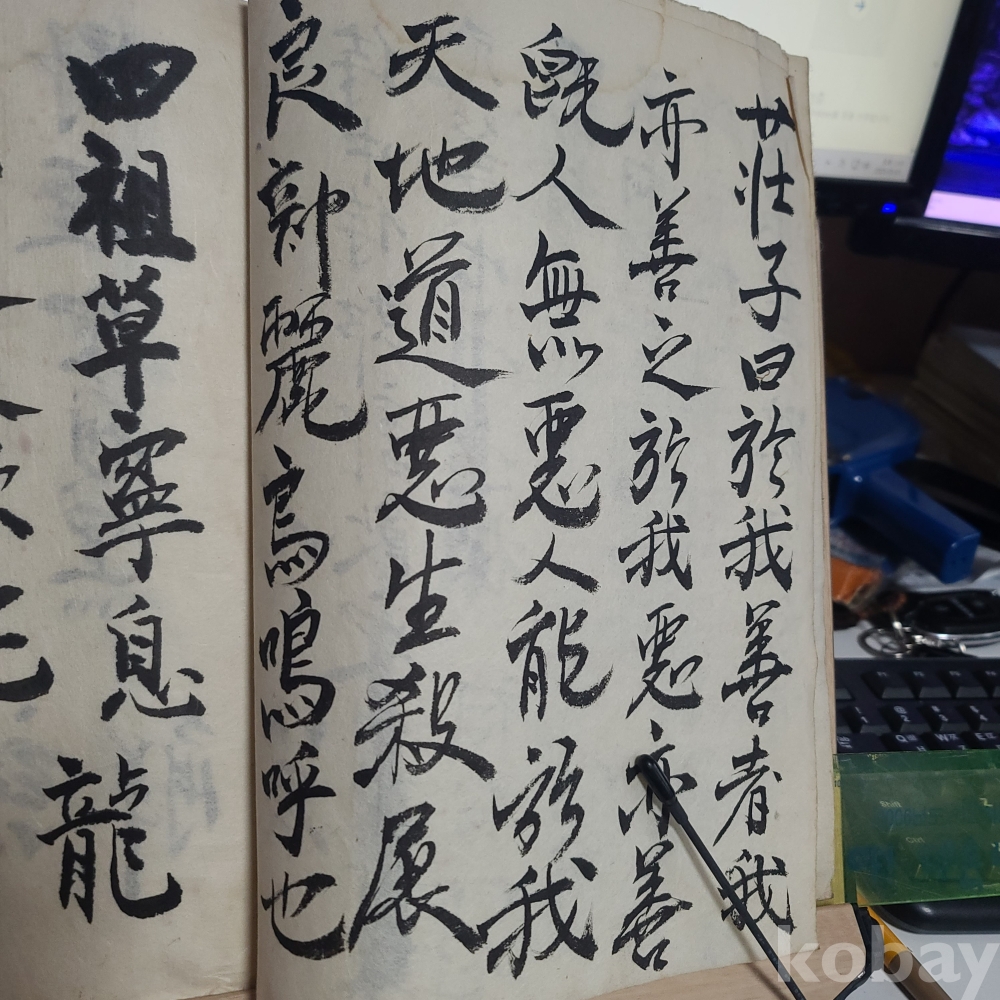 莊子曰於我善者我
亦善之於我惡亦善
既人無惡人能於我
天地道惡生殺展
良部麗焉嗚呼也
四祖草寧息龍
kobay